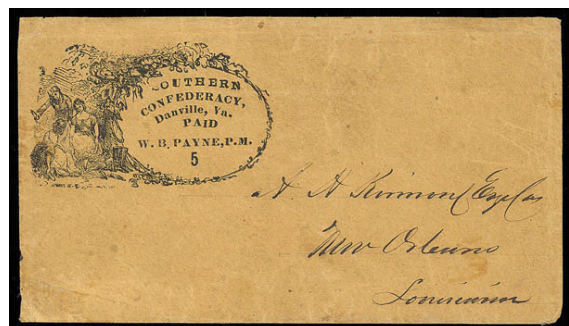 SOUTHERN
CONFEDERACY,
Danville, Va.
PAID
W. B. PAYNE, P.M.
5
A. A. Kinnon Esq
New Orleans
Louisiana